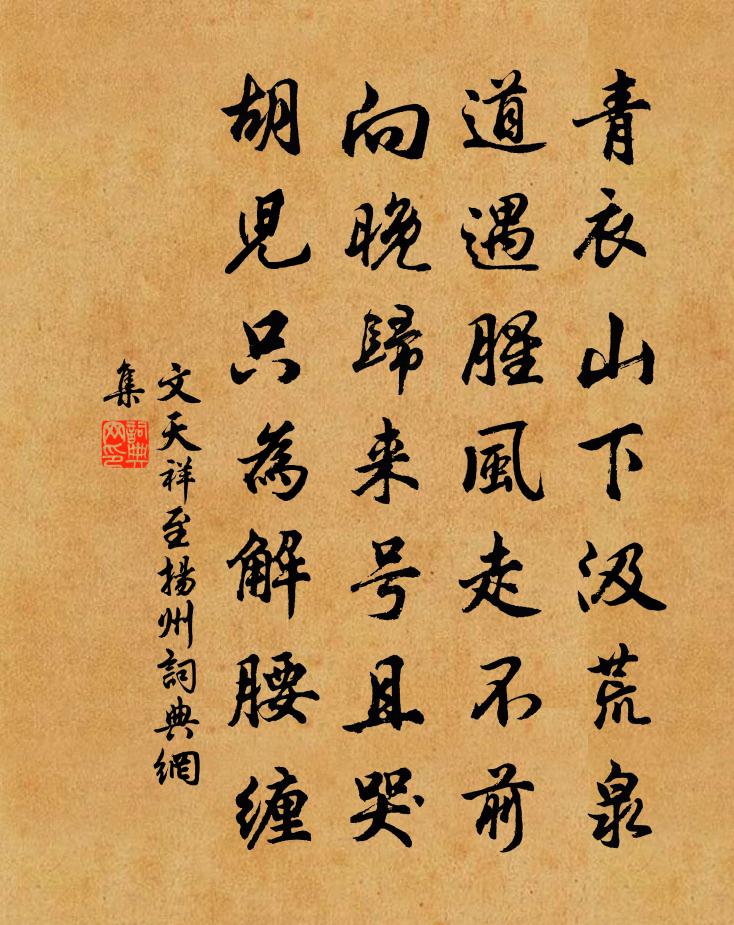 青衣山下汲荒泉
道遇腥風走不前
向晚歸来号且哭
胡児只為解腰纏
文天祥至揚州詞典網
集
詞典網印